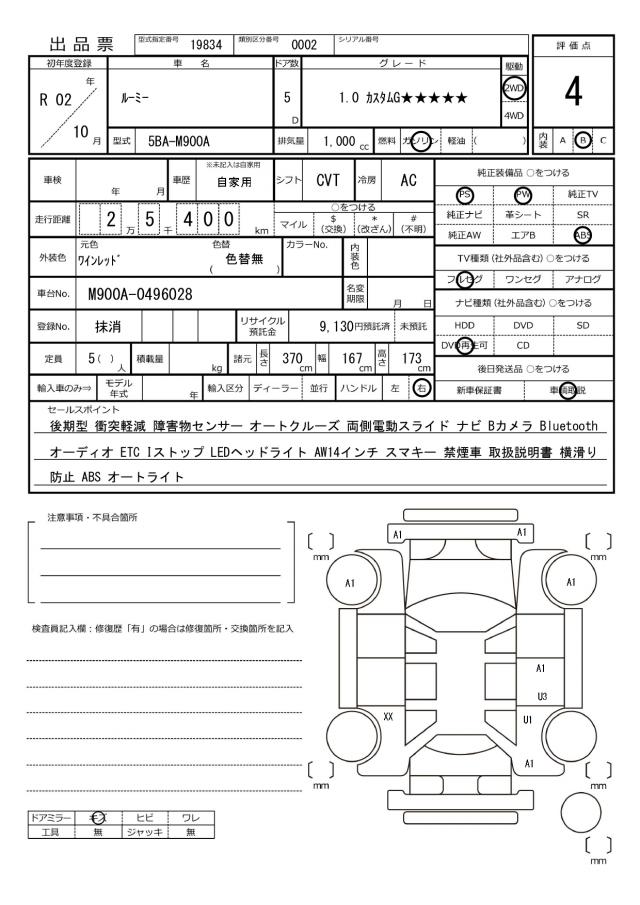 出品票
型式指定番号 19834 類別区分番号 0002 シリアル番号
評価点
初年度登録 車名 ドア数 グレード 駆動
R 02 年 ルーミー 5 D 1.0 カスタムG★★★★★ 2WD 4
4WD
10 月 型式 5BA-M900A 排気量 1,000 cc 燃料 ガソリン 軽油 ( ) 内装 A B C
車検 年 月 車歴 ※未記入は自家用 自家用 シフト CVT 冷房 AC 純正装備品 ○をつける
PS PW 純正TV
走行距離 2 万 5 千 4 0 0 km ○をつける 純正ナビ 革シート SR
マイル $(交換) *(改ざん) #(不明) 純正AW エアB ABS
外装色 元色 ワインレッド 色替 ( 色替無 ) カラーNo. 内装色 TV種類 (社外品含む) ○をつける
フルセグ ワンセグ アナログ
車台No. M900A-0496028 名変期限 月 日 ナビ種類 (社外品含む) ○をつける
登録No. 抹消 リサイクル預託金 9,130円預託済 未預託 HDD DVD SD
DVD再生可 CD
定員 5 ( ) 人 積載量 kg 諸元 長さ 370 cm 幅 167 cm 高さ 173 cm 後日発送品 ○をつける
輸入車のみ⇒ モデル年式 年 輸入区分 ディーラー 並行 ハンドル 左 右 新車保証書 車輌取説
セールスポイント
後期型 衝突軽減 障害物センサー オートクルーズ 両側電動スライド ナビ Bカメラ Bluetooth
オーディオ ETC Iストップ LEDヘッドライト AW14インチ スマキー 禁煙車 取扱説明書 横滑り
防止 ABS オートライト
注意事項・不具合箇所
検査員記入欄：修復歴「有」の場合は修復箇所・交換箇所を記入
A1 A1
[ ] mm [ ] mm
A1 A1
A1
U3
XX U1
A1
[ ] mm [ ] mm
[ ] mm
ドアミラー キズ ヒビ ワレ
工具 無 ジャッキ 無